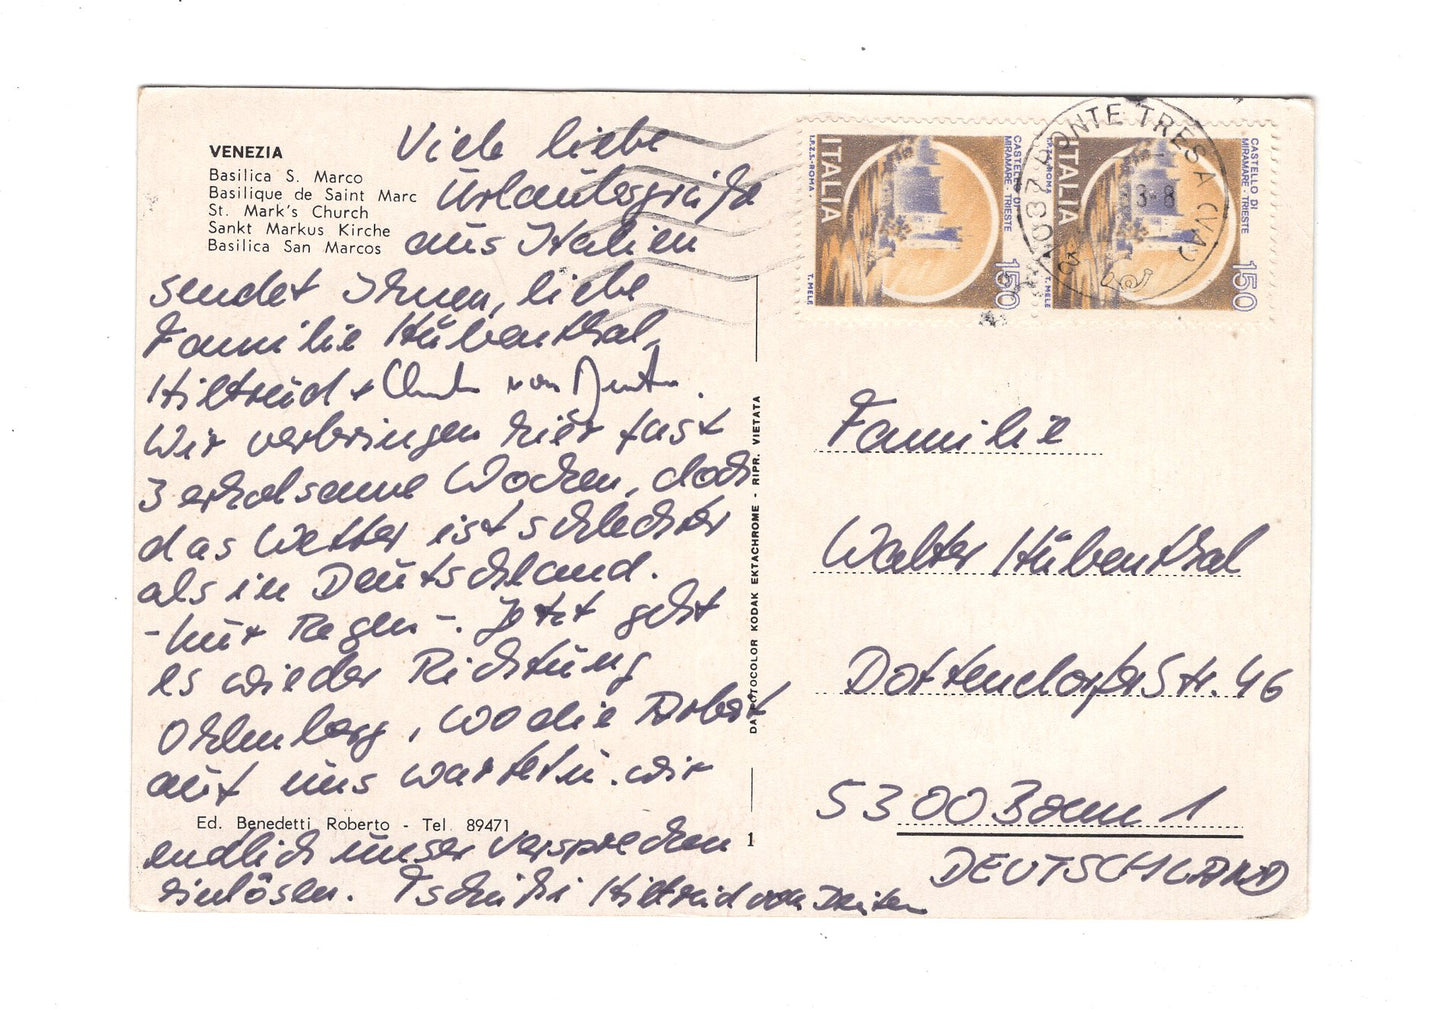 VENEZIA
Basilica S. Marco
Basilique de Saint Marc
St. Mark's Church
Sankt Markus Kirche
Basilica San Marcos
Viele liebe
Urlaubsgrüße
aus Italien
sendet Ihnen, liebe
Familie Hübenthal,
Hiltrud + von
Wir verbringen hier fast
3 erholsame Wochen, doch
das Wetter ist schlechter
als in Deutschland.
- Nur Regen -. Jetzt geht
es wieder Richtung
Ohlenberg, wo die Arbeit
auf uns wartet u. wir
Ed. Benedetti Roberto - Tel. 89471
endlich unser Versprechen
einlösen. Tschüß Hiltrud von
DA FOTOCOLOR KODAK EKTACHROME - RIPR. VIETATA
1
CASTELLO DI
MIRAMARE - TRIESTE
ITALIA
I.P.Z.S.-ROMA
150
T. MELE
CASTELLO DI
MIRAMARE - TRIESTE
ITALIA
I.P.Z.S.-ROMA
150
T. MELE
PONTE TRESA (VA)
Familie
Walter Hübenthal
Dottendorfer Str. 46
5300 Bonn 1
DEUTSCHLAND